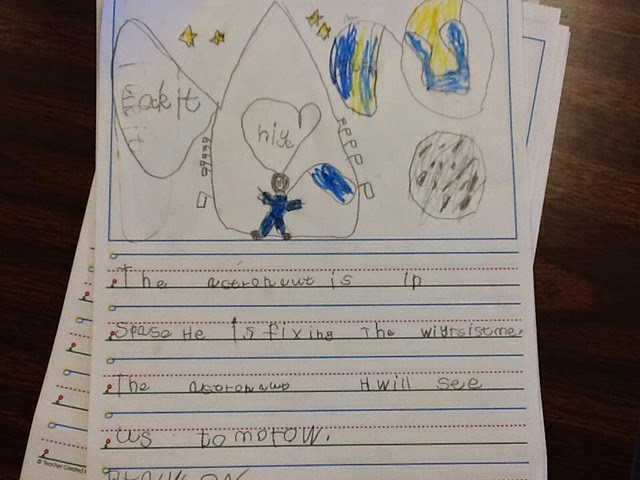 hiye
The astronaut is in
Spase He Is fixing The wiyrsistme.
The astronawt Hwill see
us tomorow.
© Teacher Created